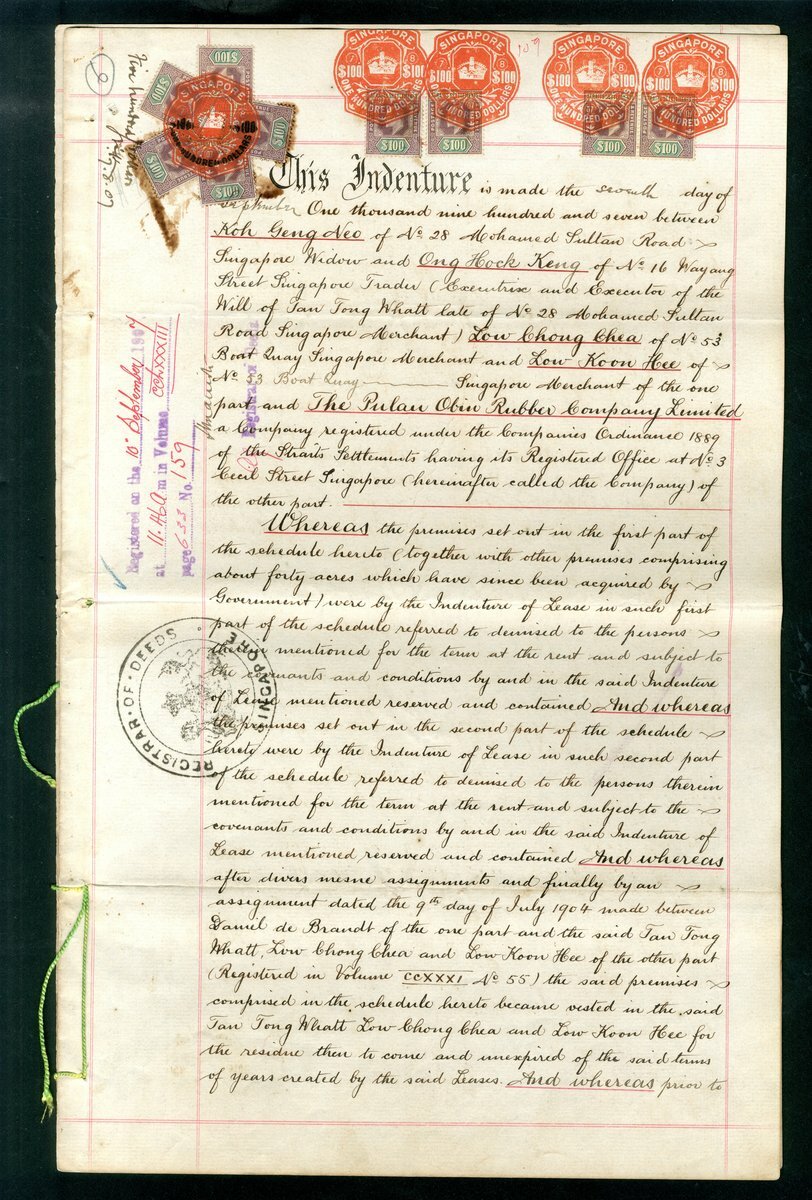 SINGAPORE
$100 $100
ONE HUNDRED DOLLARS
SINGAPORE
$100 $100
ONE HUNDRED DOLLARS
SINGAPORE
$100 $100
ONE HUNDRED DOLLARS
SINGAPORE
$100 $100
ONE HUNDRED DOLLARS
SINGAPORE
$100
$100
$100
$100
$100
$100
$100
$100
$100
$100
109
6
Five hundred
7.9.07
This Indenture is made the seventh day of
September One thousand nine hundred and seven between
Koh Geng Neo of No 28 Mohamed Sultan Road
Singapore Widow and Ong Hock Keng of No 16 Wayang
Street Singapore Trader (Executrix and Executor of the
Will of Tan Tong Whatt late of No 28 Mohamed Sultan
Road Singapore Merchant) Low Chong Chea of No 53
Boat Quay Singapore Merchant and Low Koon Hee of
No 53 Boat Quay Singapore Merchant of the one
part and The Pulau Obin Rubber Company Limited
a Company registered under the Companies Ordinance 1889
of the Straits Settlements having its Registered Office at No 3
Cecil Street Singapore (hereinafter called the Company) of
the other part.
Whereas the premises set out in the first part of
the schedule hereto (together with other premises comprising
about forty acres which have since been acquired by
Government) were by the Indenture of Lease in such first
part of the schedule referred to demised to the persons
therein mentioned for the term at the rent and subject to
the covenants and conditions by and in the said Indenture
of Lease mentioned reserved and contained And whereas
the premises set out in the second part of the schedule
hereto were by the Indenture of Lease in such second part
of the schedule referred to demised to the persons therein
mentioned for the term at the rent and subject to the
covenants and conditions by and in the said Indenture of
Lease mentioned reserved and contained And whereas
after divers mesne assignments and finally by an
assignment dated the 9th day of July 1904 made between
Daniel de Brandt of the one part and the said Tan Tong
Whatt, Low Chong Chea and Low Koon Hee of the other part
(Registered in Volume CCXXXI No 55) the said premises
comprised in the schedule hereto became vested in the said
Tan Tong Whatt Low Chong Chea and Low Koon Hee for
the residue then to come and unexpired of the said terms
of years created by the said Leases. And whereas prior to
Registered on the 10th September 1907
at 11.46 a m in Volume CCLXXXIII
page 633 No. 159
Registrar of Deeds
REGISTRAR·OF·DEEDS·
SINGAPORE